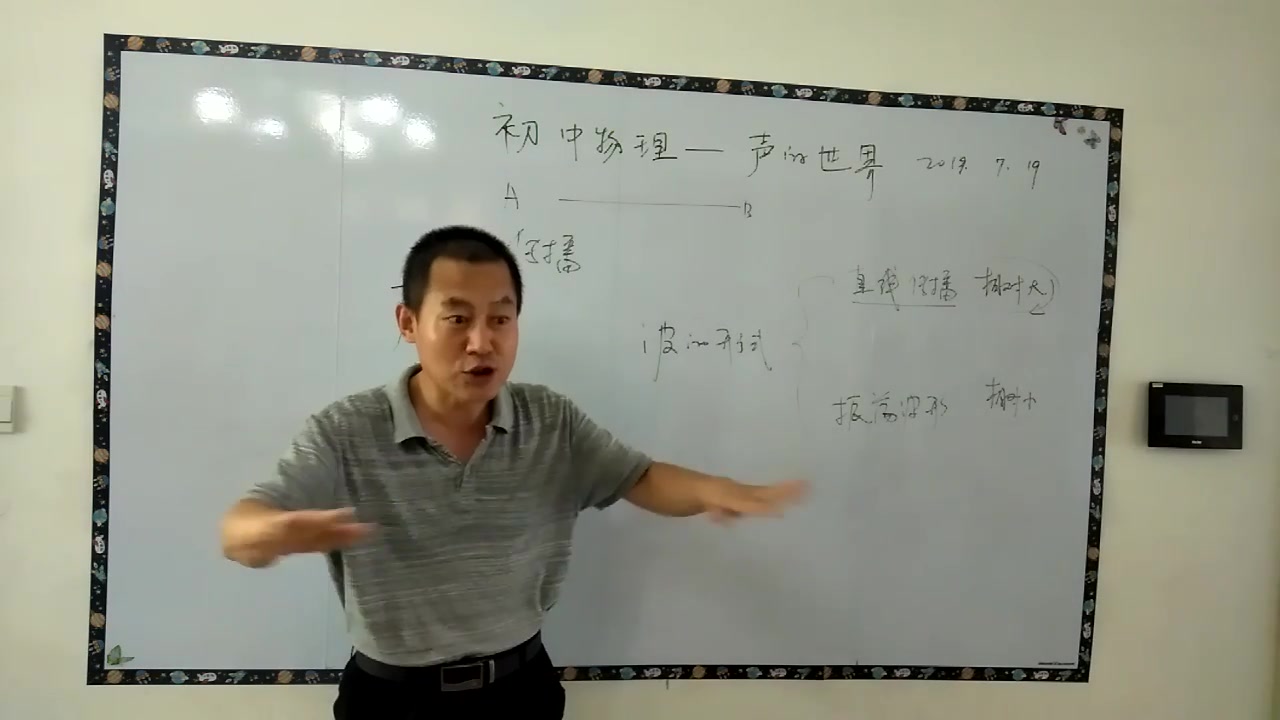 初中物理—声的世界 2019.7.19
A B
传播
直线传播 相对大
波的形式
振荡波形 相对小